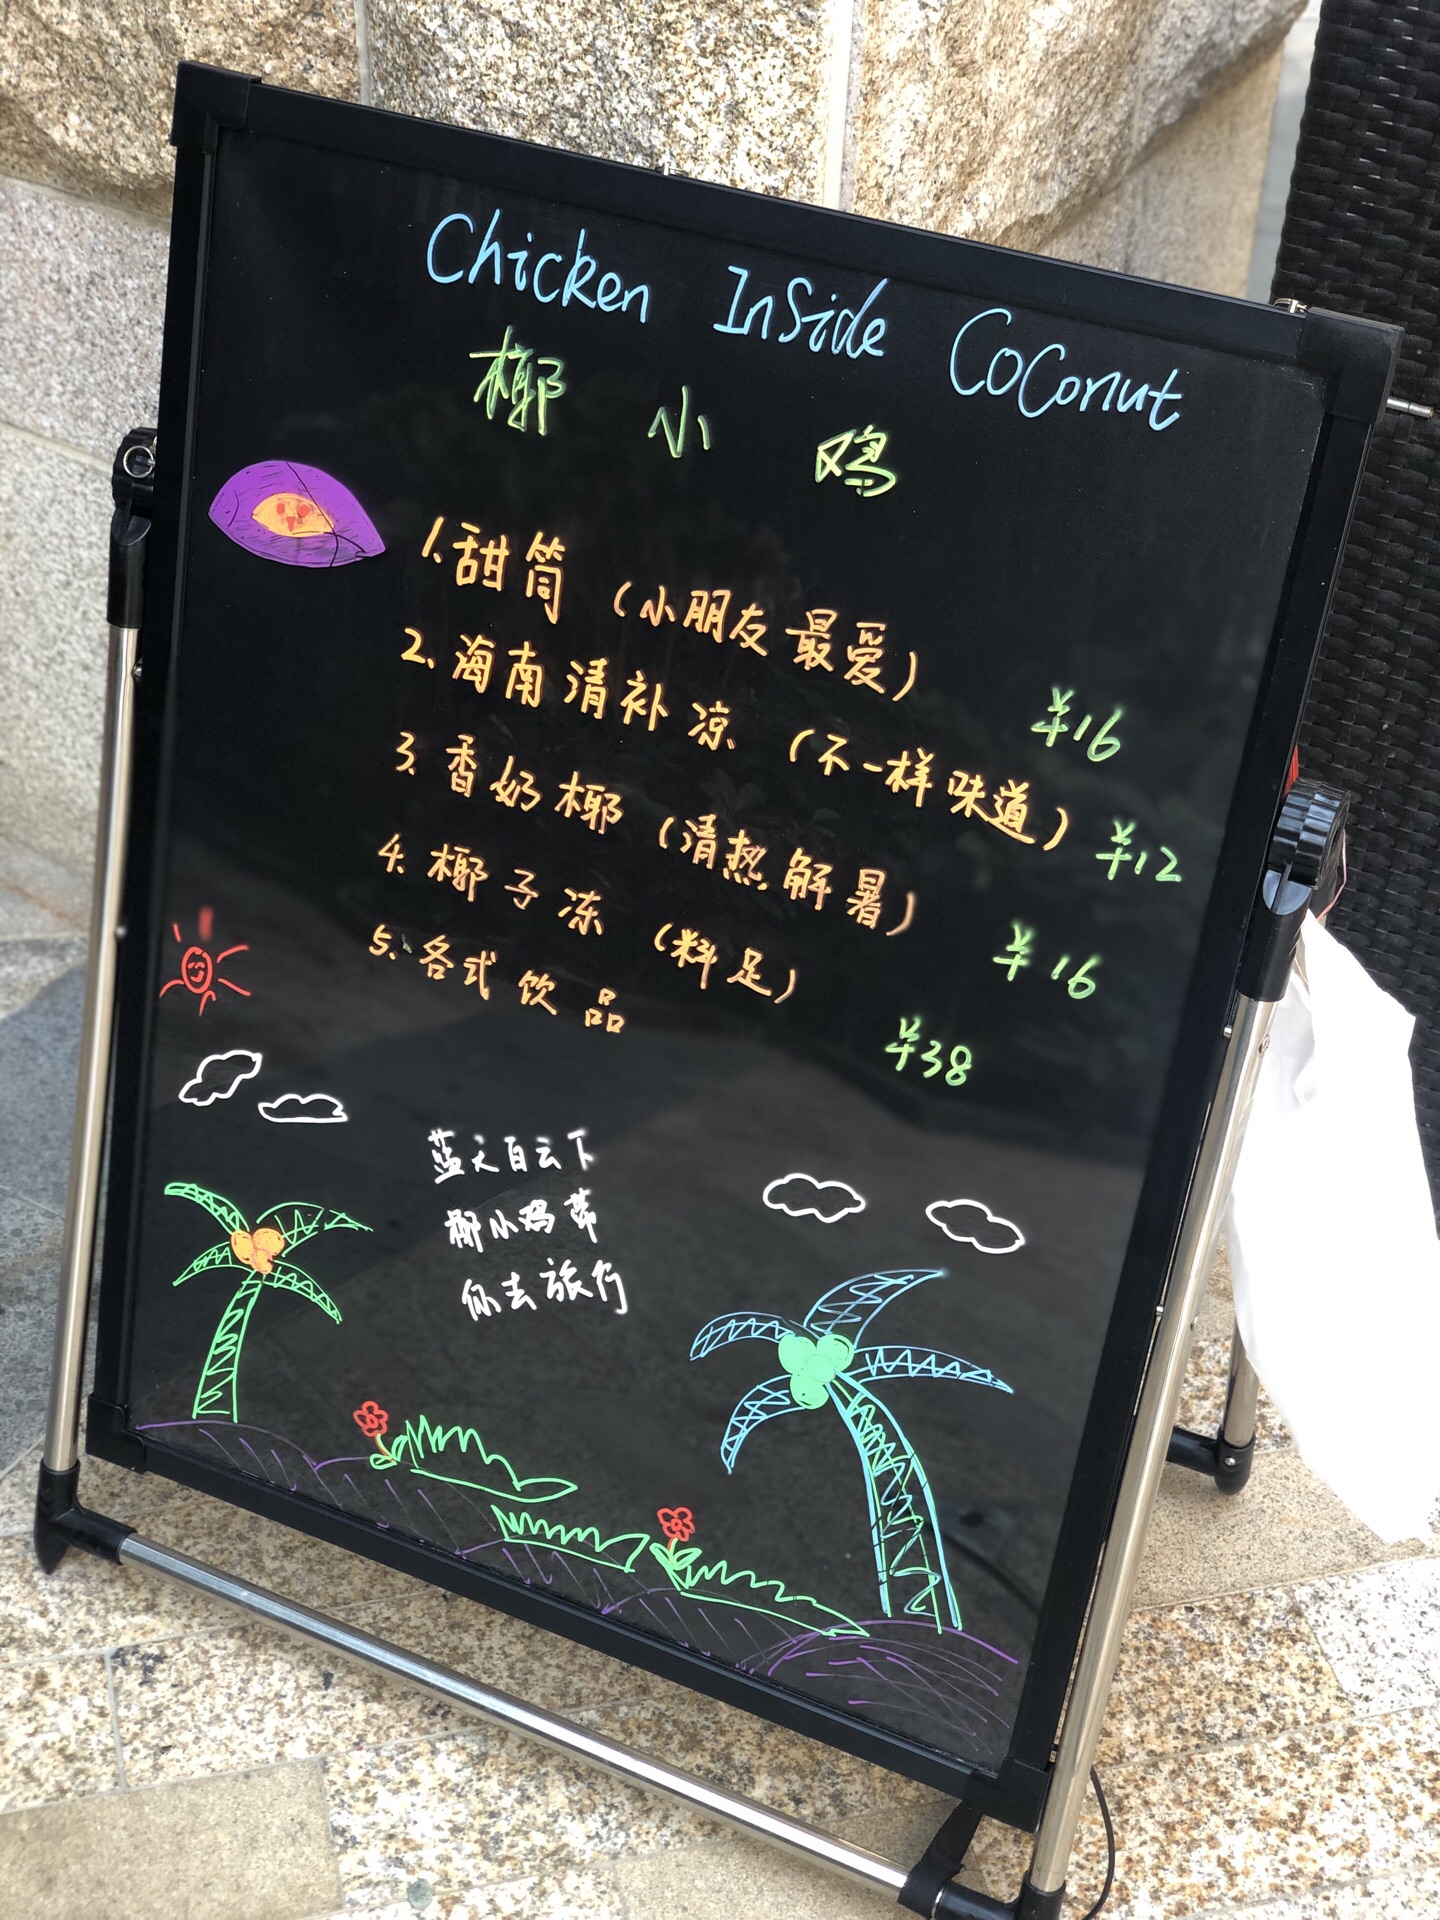 Chicken Inside Coconut
椰小鸡
1.甜筒（小朋友最爱） ¥16
2.海南清补凉（不一样味道） ¥12
3.香奶椰（清热解暑） ¥16
4.椰子冻（料足） ¥38
5.各式饮品
蓝天白云下
椰小鸡带
你去旅行